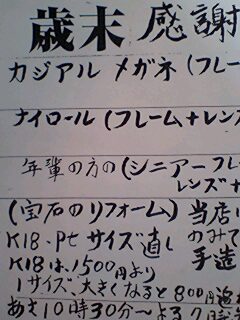 歳末 感謝
カジアル メガネ (フレー
ナイロール (フレーム+レンズ
年輩の方の (シニアーフレ
レンズ+
(宝石のリフォーム) 当店
K18・Pt サイズ直し のみて
K18は、1500円より 手造
1サイズ大きくなると800円追
あさ10時30分〜よる7時